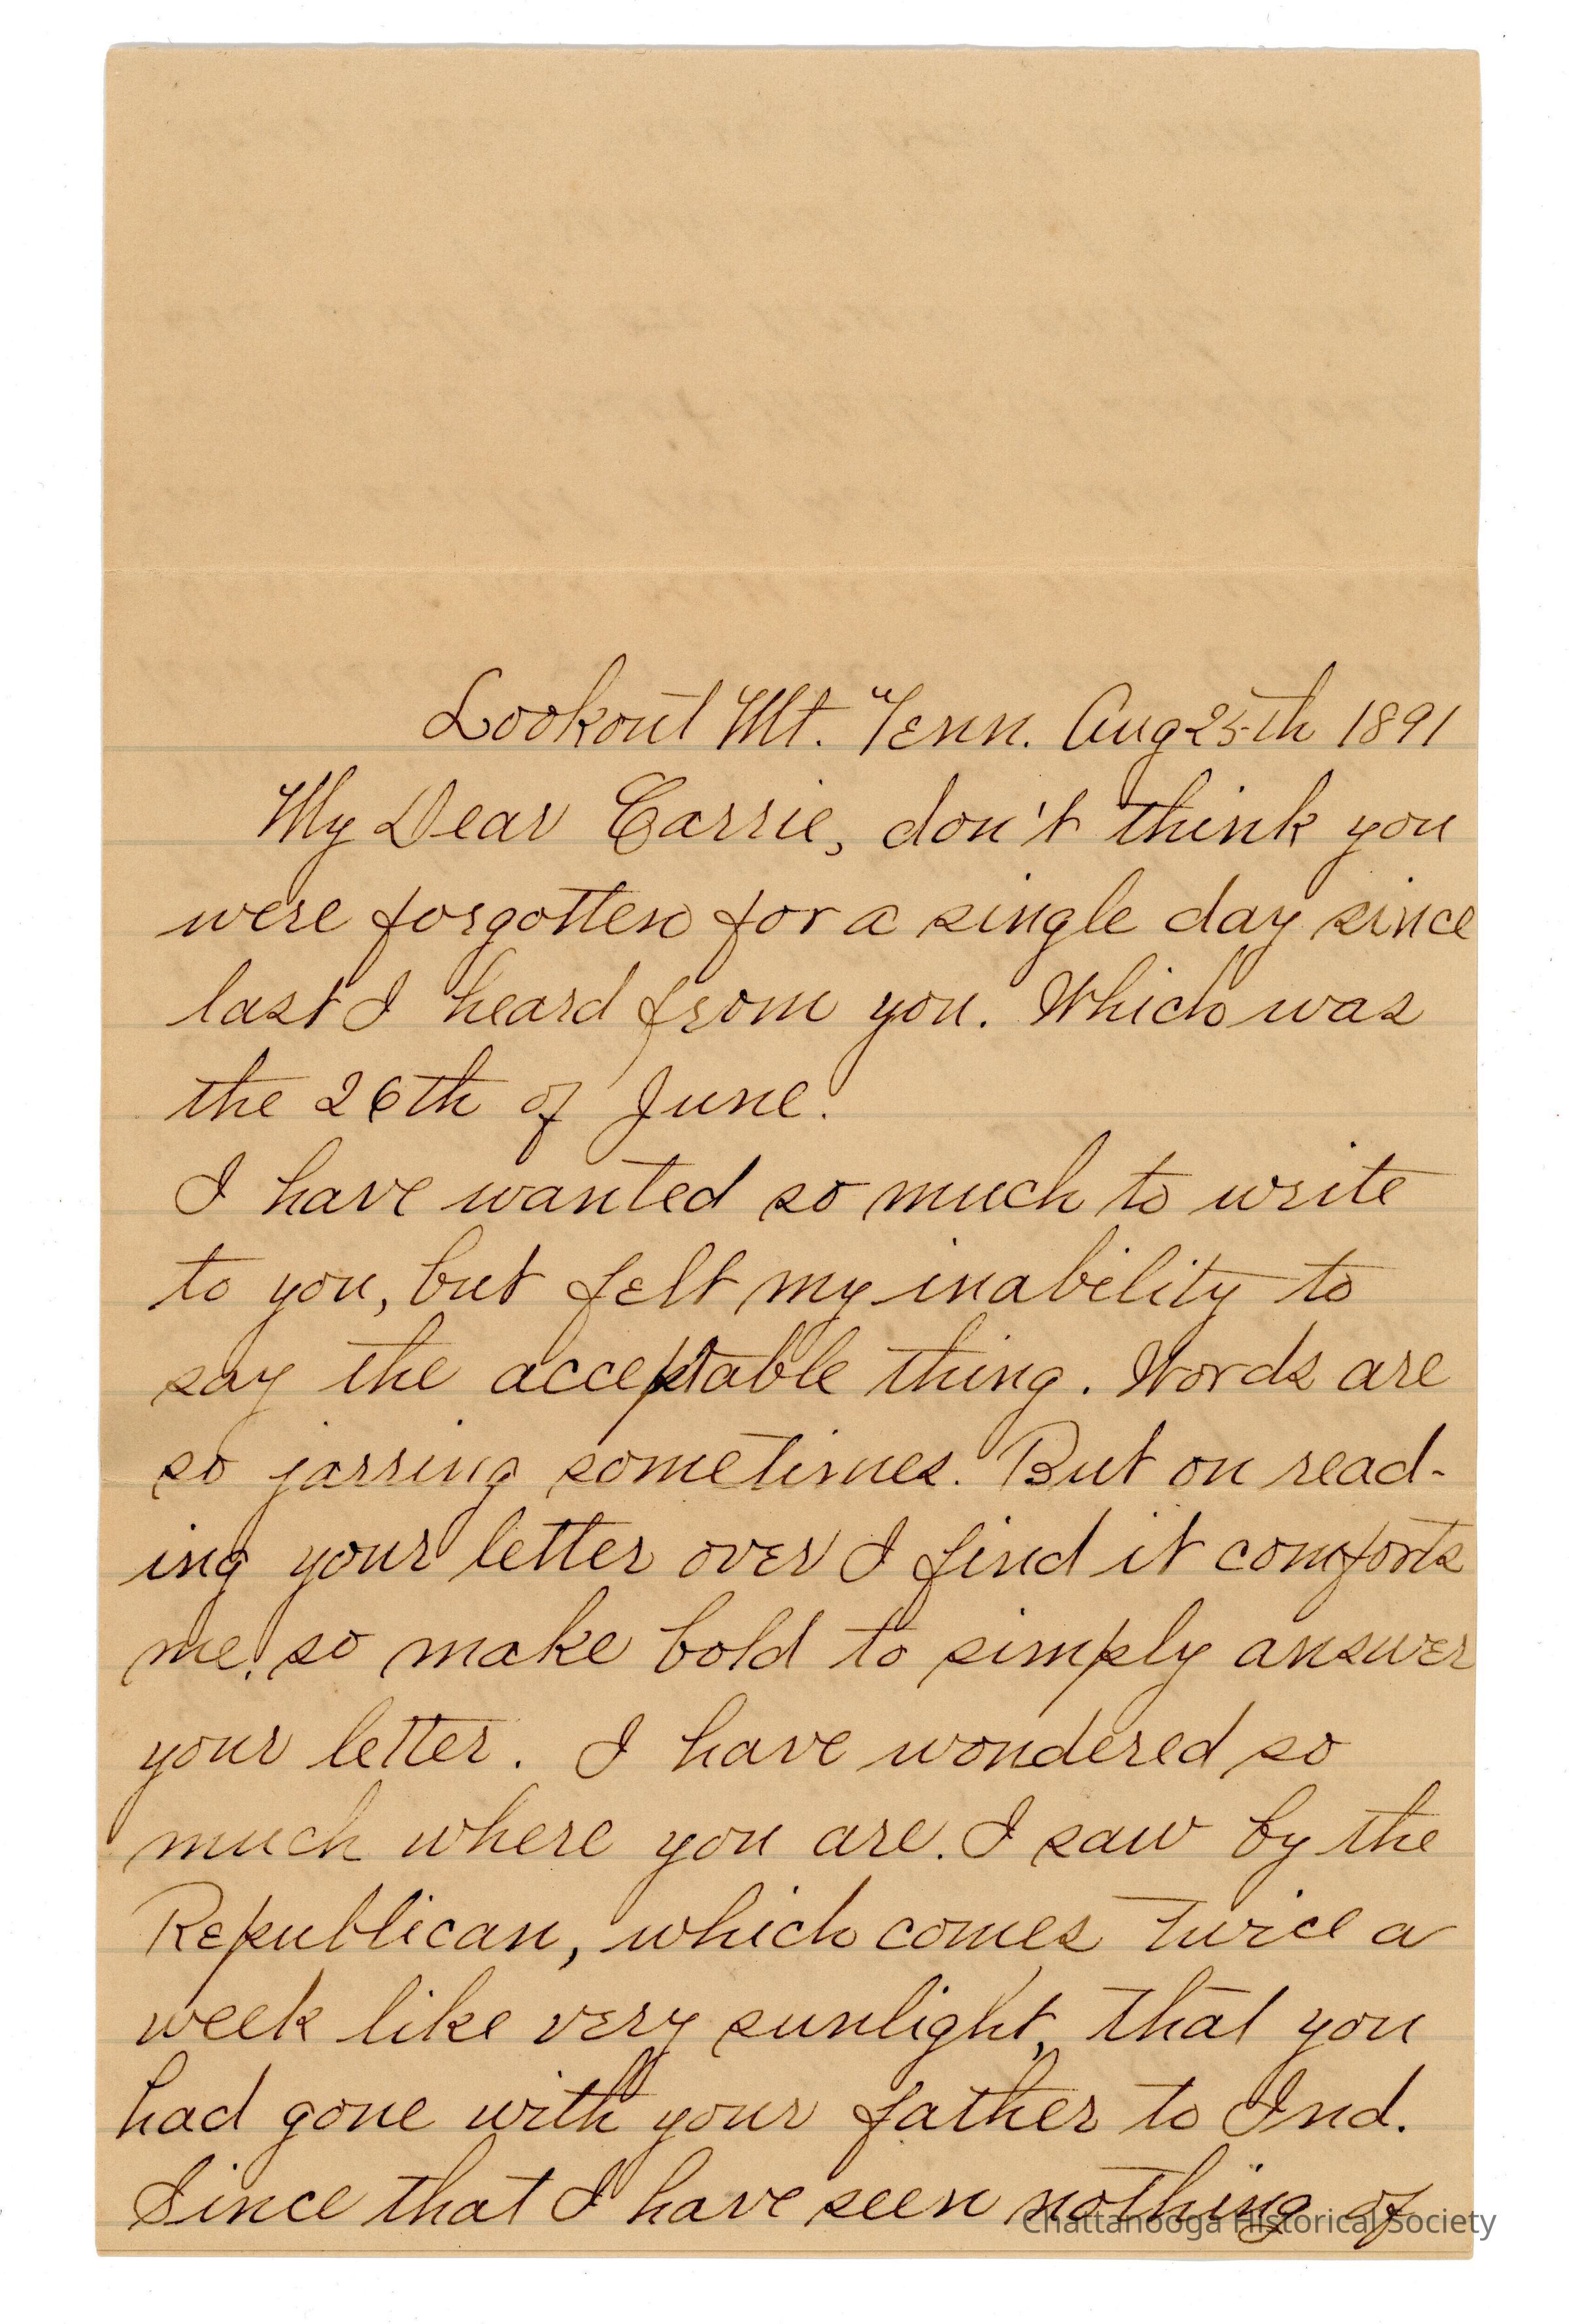 Lookout Mt. Tenn. Aug 25th 1891
My Dear Carrie, don't think you
were forgotten for a single day since
last I heard from you. Which was
the 26th of June.
I have wanted so much to write
to you, but felt my inability to
say the acceptable thing. Words are
so jarring sometimes. But on read-
ing your letter over I find it comforts
me. so make bold to simply answer
your letter. I have wondered so
much where you are. I saw by the
Republican, which comes twice a
week like very sunlight, that you
had gone with your father to Ind.
Since that I have seen nothing of
Chattanooga Historical Society